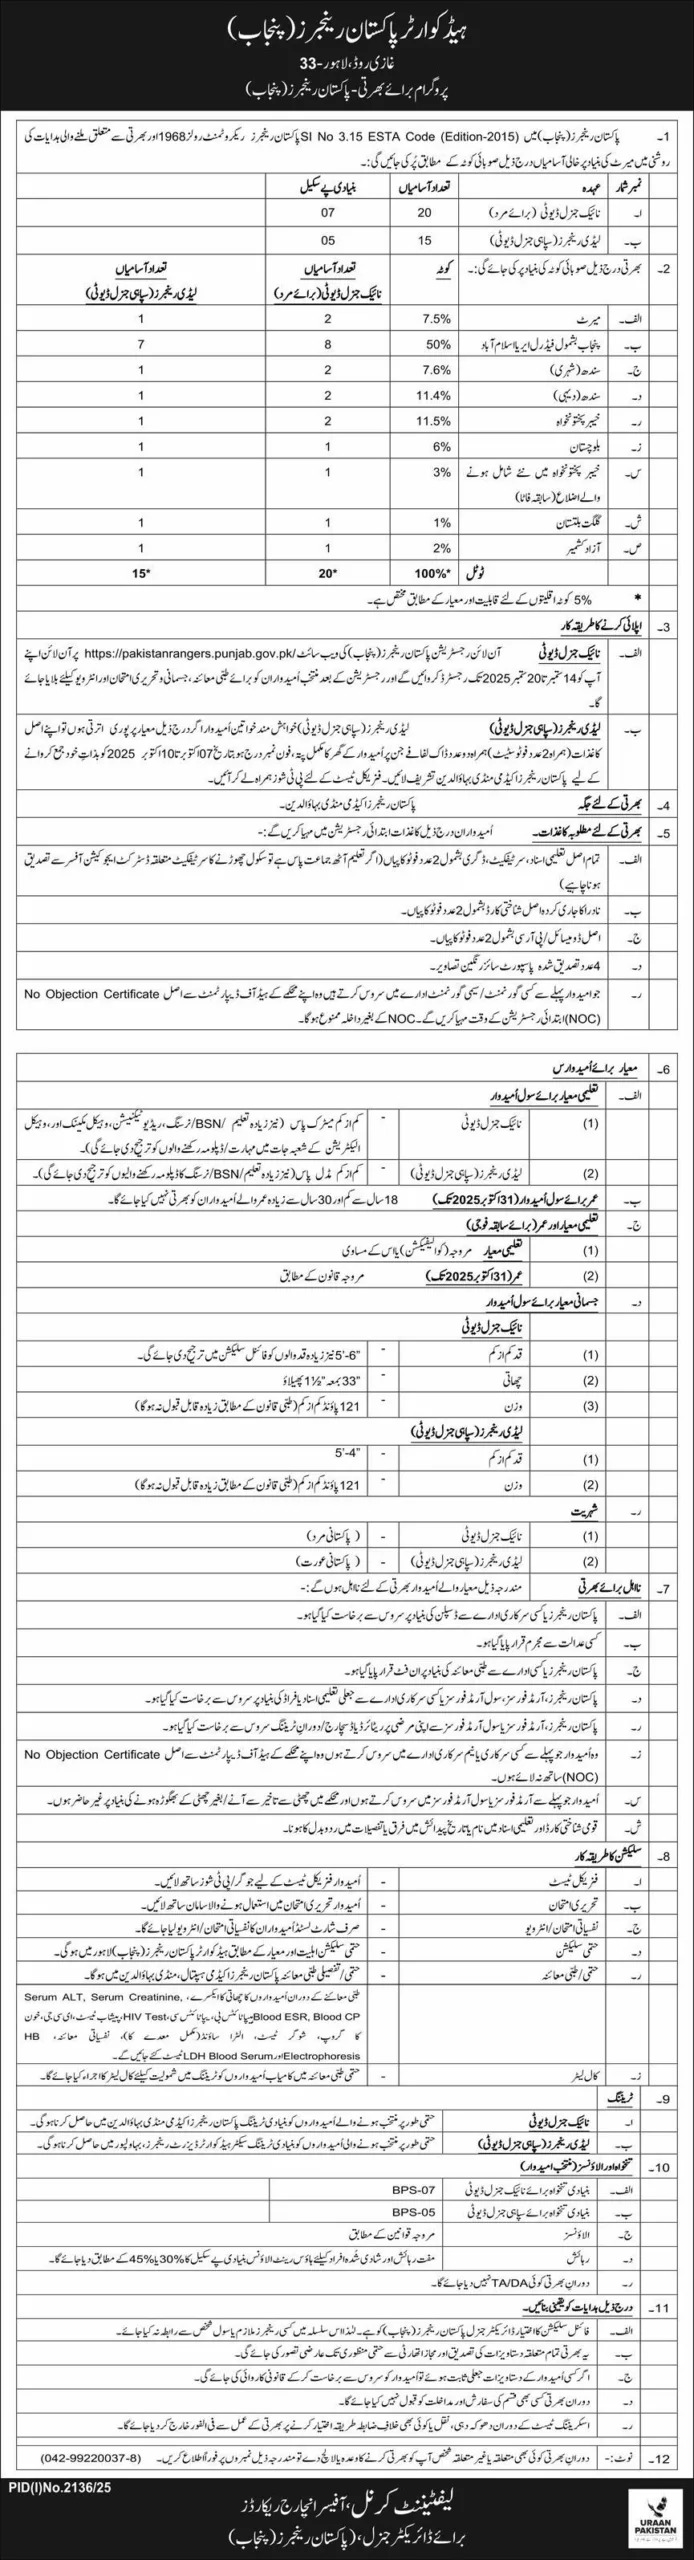 ہیڈکوارٹر پاکستان رینجرز (پنجاب)
غازی روڈ، لاہور-33
پروگرام برائے بھرتی - پاکستان رینجرز (پنجاب)
1۔ پاکستان رینجرز (پنجاب) میں SI No 3.15 ESTA Code (Edition-2015) پاکستان رینجرز ریکروٹمنٹ رولز 1968 اور بھرتی سے متعلق ملنے والی ہدایات کی
روشنی میں میرٹ کی بنیاد پر خالی آسامیاں درج ذیل صوبائی کوٹہ کے مطابق پُر کی جائیں گی:۔
نمبر شمار عہدہ تعداد آسامیاں بنیادی پے سکیل
ا۔ نائیک جنرل ڈیوٹی (برائے مرد) 20 07
ب۔ لیڈی رینجرز (سپاہی جنرل ڈیوٹی) 15 05
2۔ بھرتی درج ذیل صوبائی کوٹہ کی بنیاد پر کی جائے گی:۔ کوٹہ تعداد آسامیاں تعداد آسامیاں
نائیک جنرل ڈیوٹی (برائے مرد) لیڈی رینجرز (سپاہی جنرل ڈیوٹی)
الف۔ میرٹ 7.5% 2 1
ب۔ پنجاب بشمول فیڈرل ایریا اسلام آباد 50% 8 7
ج۔ سندھ (شہری) 7.6% 2 1
د۔ سندھ (دیہی) 11.4% 2 1
ر۔ خیبر پختونخواہ 11.5% 2 1
ز۔ بلوچستان 6% 1 1
س۔ خیبر پختونخواہ میں نئے شامل ہونے 3% 1 1
والے اضلاع (سابقہ فاٹا)
ش۔ گلگت بلتستان 1% 1 1
ص۔ آزاد کشمیر 2% 1 1
ٹوٹل 100%* 20* 15*
* 5% کوٹہ اقلیتوں کے لئے قابلیت اور معیار کے مطابق مختص ہے۔
3۔ اپلائی کرنے کا طریقہ کار
الف۔ نائیک جنرل ڈیوٹی آن لائن رجسٹریشن پاکستان رینجرز (پنجاب) کی ویب سائٹ https://pakistanrangers.punjab.gov.pk/ پر آن لائن اپنے
آپ کو 14 ستمبر تا 20 ستمبر 2025 تک رجسٹرڈ کروائیں گے اور رجسٹریشن کے بعد منتخب اُمیدواران کو برائے طبی معائنہ، جسمانی و تحریری امتحان اور انٹرویو کیلئے بلایا جائے
گا۔
ب۔ لیڈی رینجرز (سپاہی جنرل ڈیوٹی) لیڈی رینجرز (سپاہی جنرل ڈیوٹی) خواہش مند خواتین اُمیدوار اگر درج ذیل معیار پر پوری اترتی ہوں تو اپنے اصل
کاغذات (ہمراہ 2 عدد فوٹو سٹیٹ) ہمراہ دو عدد ڈاک لفافے جن پر اُمیدوار کے گھر کا مکمل پتہ، فون نمبر درج ہو بتاریخ 07 اکتوبر تا 10 اکتوبر 2025 کو بذاتِ خود جمع کروانے
کے لیے پاکستان رینجرز اکیڈمی منڈی بہاؤالدین تشریف لائیں۔ فزیکل ٹیسٹ کے لئے پی ٹی شوز ہمراہ لے کر آئیں۔
4۔ بھرتی کے لئے جگہ پاکستان رینجرز اکیڈمی منڈی بہاؤالدین۔
5۔ بھرتی کے لئے مطلوبہ کاغذات۔ اُمیدواران درج ذیل کاغذات ابتدائی رجسٹریشن میں مہیا کریں گے:۔
الف۔ تمام اصل تعلیمی اسناد، سرٹیفکیٹ، ڈگری بشمول 2 عدد فوٹو کاپیاں (اگر تعلیم آٹھ جماعت پاس ہے تو سکول چھوڑنے کا سرٹیفکیٹ متعلقہ ڈسٹرکٹ ایجوکیشن آفسر سے تصدیق
ہونا چاہیے)
ب۔ نادرا کا جاری کردہ اصل شناختی کارڈ بشمول 2 عدد فوٹو کاپیاں۔
ج۔ اصل ڈومیسائل/پی آر سی بشمول 2 عدد فوٹو کاپیاں۔
د۔ 4 عدد تصدیق شدہ پاسپورٹ سائز رنگین تصاویر۔
ر۔ جو امیدوار پہلے سے کسی گورنمنٹ/سیمی گورنمنٹ ادارے میں سروس کرتے ہیں وہ اپنے محکمے کے ہیڈ آف ڈیپارٹمنٹ سے اصل No Objection Certificate
(NOC) ابتدائی رجسٹریشن کے وقت مہیا کریں گے۔ NOC کے بغیر داخلہ ممنوع ہو گا۔
6۔ معیار برائے اُمیدوارس
الف۔ تعلیمی معیار برائے سول اُمیدوار
(1) نائیک جنرل ڈیوٹی - کم از کم میٹرک پاس (نیز زیادہ تعلیم/BSN/نرسنگ، ریڈیو ٹیکنیشن، وہیکل مکینک اور وہیکل
الیکٹریشن کے شعبہ جات میں مہارت/ڈپلومہ رکھنے والوں کو ترجیح دی جائے گی)۔
(2) لیڈی رینجرز (سپاہی جنرل ڈیوٹی) - کم از کم مڈل پاس (نیز زیادہ تعلیم/BSN/نرسنگ کا ڈپلومہ رکھنے والیوں کو ترجیح دی جائے گی)۔
ب۔ عمر برائے سول اُمیدوار (31 اکتوبر 2025 تک) 18 سال سے کم اور 30 سال سے زیادہ عمر والے اُمیدواران کو بھرتی نہیں کیا جائے گا۔
ج۔ تعلیمی معیار اور عمر (برائے سابقہ فوجی)
(1) تعلیمی معیار مروجہ (کوالیفکیشن) یا اس کے مساوی
(2) عمر (31 اکتوبر 2025 تک) مروجہ قانون کے مطابق
د۔ جسمانی معیار برائے سول اُمیدوار
نائیک جنرل ڈیوٹی
(1) قد کم از کم - 5'-6" نیز زیادہ قد والوں کو فائنل سلیکشن میں ترجیح دی جائے گی۔
(2) چھاتی - 33" بمعہ 1½" پھیلاؤ
(3) وزن - 121 پاؤنڈ کم از کم (طبی قانون کے مطابق زیادہ قابل قبول نہ ہو گا)
لیڈی رینجرز (سپاہی جنرل ڈیوٹی)
(1) قد کم از کم - 5'-4"
(2) وزن - 121 پاؤنڈ کم از کم (طبی قانون کے مطابق زیادہ قابل قبول نہ ہو گا)
ر۔ شہریت
(1) نائیک جنرل ڈیوٹی - (پاکستانی مرد)
(2) لیڈی رینجرز (سپاہی جنرل ڈیوٹی) - (پاکستانی عورت)
7۔ نااہل برائے بھرتی مندرجہ ذیل معیار والے اُمیدوار بھرتی کے لئے نااہل ہوں گے:۔
الف۔ پاکستان رینجرز یا کسی سرکاری ادارے سے ڈسپلن کی بنیاد پر سروس سے برخاست کیا گیا ہو۔
ب۔ کسی عدالت سے مجرم قرار پایا گیا ہو۔
ج۔ پاکستان رینجرز یا کسی ادارے سے طبی معائنہ کی بنیاد پر ان فٹ قرار پایا گیا ہو۔
د۔ پاکستان رینجرز، آرمڈ فورسز، سول آرمڈ فورسز یا کسی سرکاری ادارے سے جعلی تعلیمی اسناد یا فراڈ کی بنیاد پر سروس سے برخاست کیا گیا ہو۔
ر۔ پاکستان رینجرز، آرمڈ فورسز یا سول آرمڈ فورسز سے اپنی مرضی پر ریٹائرڈ یا ڈسچارج/دوران ٹریننگ سروس سے برخاست کیا گیا ہو۔
ز۔ وہ اُمیدوار جو پہلے سے کسی سرکاری یا نیم سرکاری ادارے میں سروس کرتے ہوں وہ اپنے محکمے کے ہیڈ آف ڈیپارٹمنٹ سے اصل No Objection Certificate
(NOC) ساتھ نہ لائے ہوں۔
س۔ اُمیدوار جو پہلے سے آرمڈ فورسز یا سول آرمڈ فورسز میں سروس کرتے ہوں اور محکمے میں چھٹی سے تاخیر سے آنے/بغیر چھٹی کے بھگوڑہ ہونے کی بنیاد پر غیر حاضر ہوں۔
ش۔ قومی شناختی کارڈ اور تعلیمی اسناد میں نام یا تاریخ پیدائش میں فرق یا تفصیلات میں ردوبدل کا ہونا۔
8۔ سلیکشن کا طریقہ کار
ا۔ فزیکل ٹیسٹ - اُمیدوار فزیکل ٹیسٹ کے لیے جوگر/پی ٹی شوز ساتھ لائیں۔
ب۔ تحریری امتحان - اُمیدوار تحریری امتحان میں استعمال ہونے والا سامان ساتھ لائیں۔
ج۔ نفسیاتی امتحان/انٹرویو - صرف شارٹ لسٹڈ اُمیدواران کا نفسیاتی امتحان/انٹرویو لیا جائے گا۔
د۔ حتمی سلیکشن - حتمی سلیکشن اہلیت اور معیار کے مطابق ہیڈکوارٹر پاکستان رینجرز (پنجاب) لاہور میں ہوگی۔
ر۔ حتمی/طبی معائنہ - حتمی/تفصیلی طبی معائنہ پاکستان رینجرز اکیڈمی ہسپتال، منڈی بہاؤالدین میں ہوگا۔
طبی معائنے کے دوران اُمیدواروں کا چھاتی کا ایکسرے، Serum ALT, Serum Creatinine,
Blood ESR, Blood CP، ہیپاٹائٹس بی، ہیپاٹائٹس سی، HIV Test، پیشاب ٹیسٹ، ای سی جی، خون
کا گروپ، شوگر ٹیسٹ، الٹرا ساؤنڈ (مکمل معدے کا)، نفسیاتی معائنہ، HB
Electrophoresis اور LDH Blood Serum ٹیسٹ کئے جائیں گے۔
ز۔ کال لیٹر - حتمی طبی معائنہ میں کامیاب اُمیدواروں کو ٹریننگ میں شمولیت کیلئے کال لیٹر کا اجراء کیا جائے گا۔
9۔ ٹریننگ
ا۔ نائیک جنرل ڈیوٹی حتمی طور پر منتخب ہونے والے اُمیدواروں کو بنیادی ٹریننگ پاکستان رینجرز اکیڈمی منڈی بہاؤالدین میں حاصل کرنا ہوگی۔
ب۔ لیڈی رینجرز (سپاہی جنرل ڈیوٹی) حتمی طور پر منتخب ہونے والی اُمیدواروں کو بنیادی ٹریننگ سیکٹر ہیڈکوارٹر ڈیزرٹ رینجرز، بہاولپور میں حاصل کرنا ہوگی۔
10۔ تنخواہ اور الاؤنسز (منتخب امیدوار)
الف۔ بنیادی تنخواہ برائے نائیک جنرل ڈیوٹی BPS-07
ب۔ بنیادی تنخواہ برائے سپاہی جنرل ڈیوٹی BPS-05
ج۔ الاؤنسز مروجہ قوانین کے مطابق
د۔ رہائش مفت رہائش اور شادی شُدہ افراد کیلئے ہاؤس رینٹ الاؤنس بنیادی پے سکیل کا 30% یا 45% کے مطابق دیا جائے گا۔
ر۔ دوران بھرتی کوئی TA/DA نہیں دیا جائے گا۔
11۔ درج ذیل ہدایات کو یقینی بنائیں۔
الف۔ فائنل سلیکشن کا اختیار ڈائریکٹر جنرل پاکستان رینجرز (پنجاب) کو ہے۔ لہٰذا اس سلسلہ میں کسی رینجرز ملازم یا سول شخص سے رابطہ نہ کیا جائے۔
ب۔ یہ بھرتی تمام متعلقہ دستاویزات کی تصدیق اور مجاز اتھارٹی سے حتمی منظوری تک عارضی تصور کی جائے گی۔
ج۔ اگر کسی اُمیدوار کے دستاویزات جعلی ثابت ہوئے تو اُمیدوار کو سروس سے برخاست کر کے قانونی کاروائی کی جائے گی۔
د۔ دوران بھرتی کسی بھی قسم کی سفارش اور مداخلت کو قبول نہیں کیا جائے گا۔
ر۔ اسکریننگ ٹیسٹ کے دوران دھوکہ دہی، نقل یا کوئی بھی خلاف ضابطہ طریقہ اختیار کرنے پر بھرتی کے عمل سے فی الفور خارج کر دیا جائے گا۔
12۔ نوٹ:- دوران بھرتی کوئی بھی متعلقہ یا غیر متعلقہ شخص آپ کو بھرتی کرنے کا وعدہ یا لالچ دے تو مندرجہ ذیل نمبروں پر فوراً اطلاع کریں۔ (042-99220037-8)
PID(I)No.2136/25
لیفٹیننٹ کرنل، آفیسر انچارج ریکارڈز
برائے ڈائریکٹر جنرل، (پاکستان رینجرز (پنجاب)
URAAN
PAKISTAN